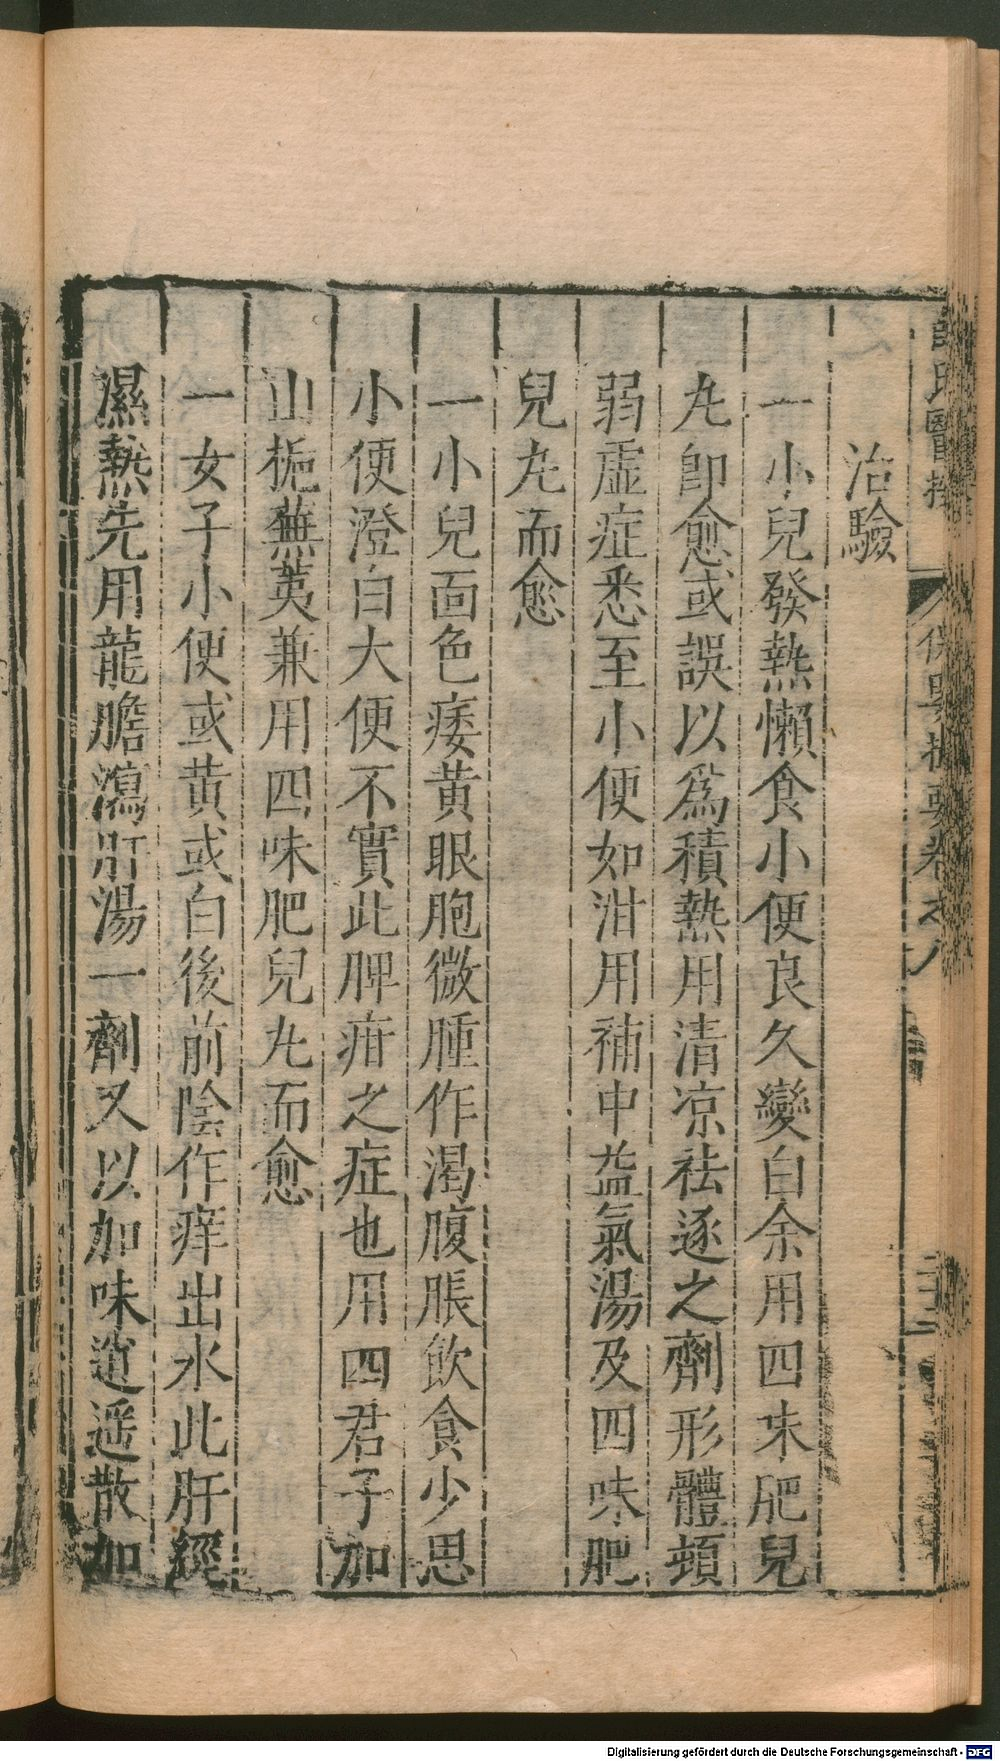 治驗
一小兒發熱懶食小便良久變白余用四味肥兒
丸卽愈或誤以爲積熱用清凉祛逐之劑形體頓
弱虛症悉至小便如泔用補中益氣湯及四味肥
兒丸而愈
一小兒面色痿黃眼胞微腫作渴腹脹飲食少思
小便澄白大便不實此脾疳之症也用四君子加
山梔蕪荑兼用四味肥兒丸而愈
一女子小便或黃或白後前陰作痒出水此肝經
濕熱先用龍膽瀉肝湯一劑又以加味逍遥散加
氏醫按
保嬰撮要卷之八
Digitalisierung gefördert durch die Deutsche Forschungsgemeinschaft - DFG